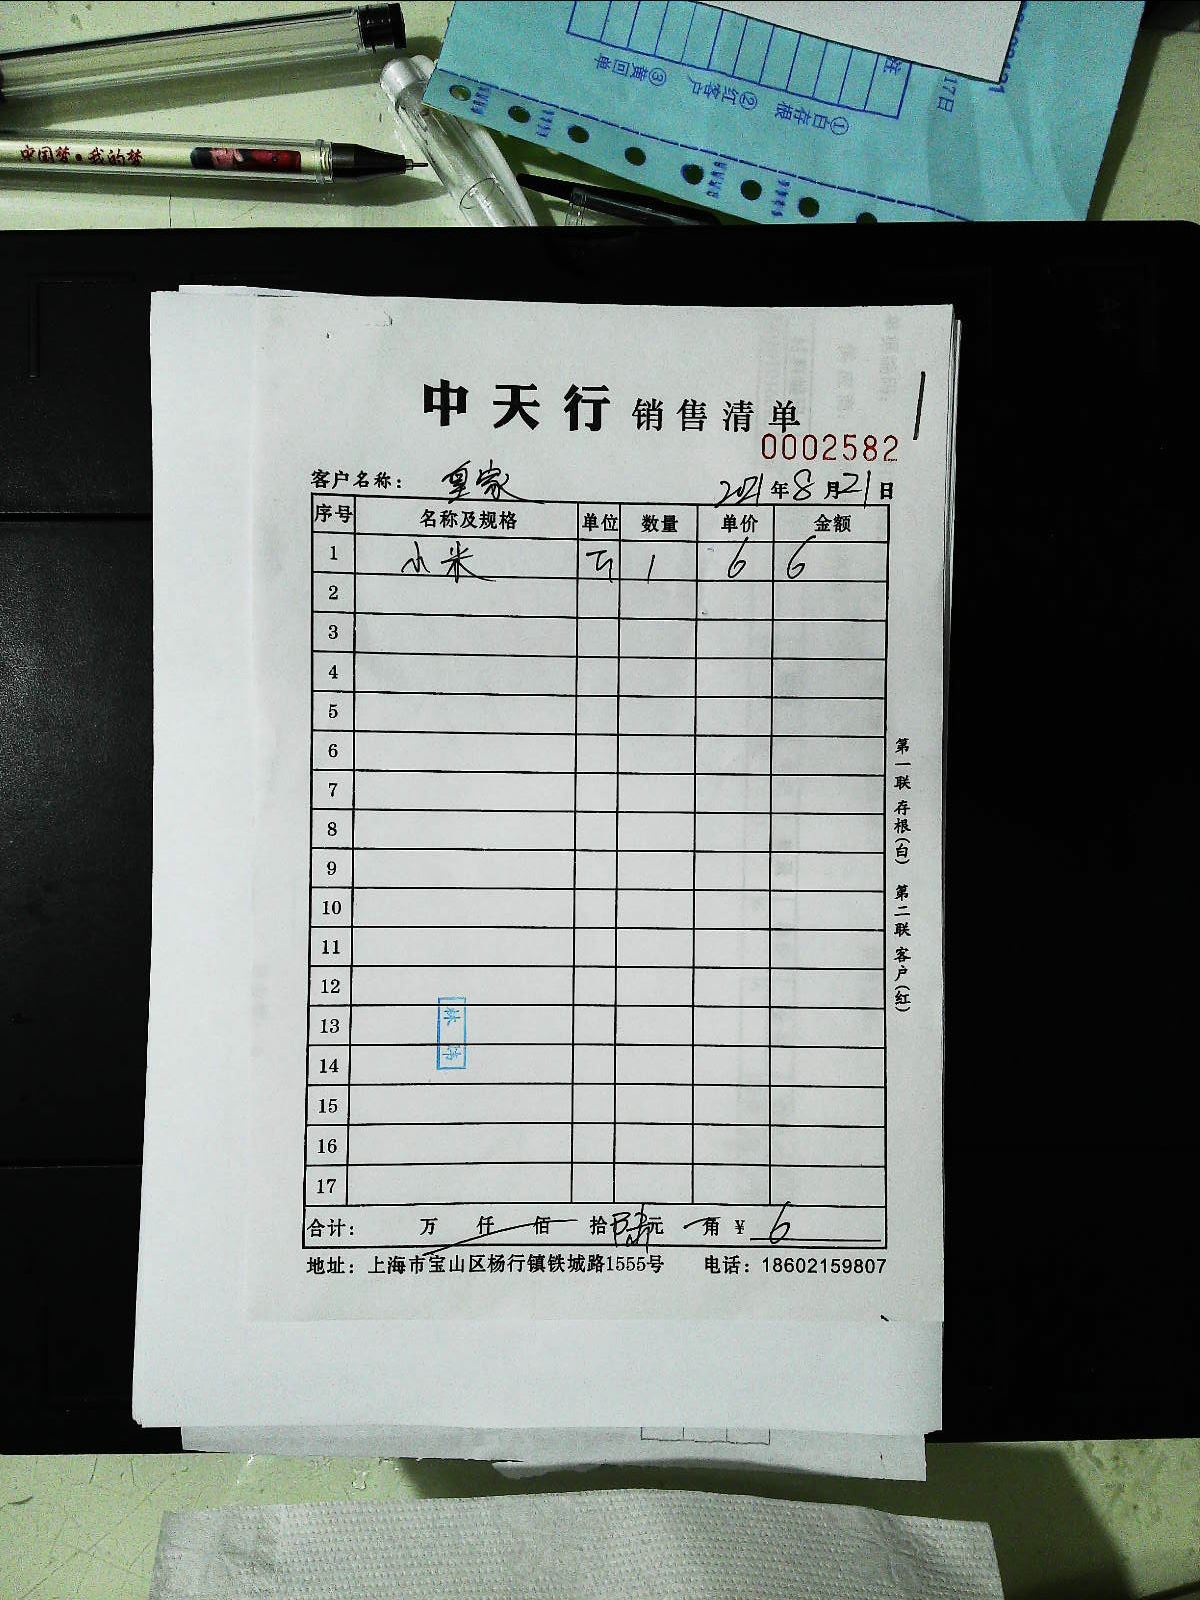 中国梦·我的梦
17日
③黄回单
②红客户
①白存根
中天行销售清单
0002582
客户名称： 皇家 2021年8月21日
序号 名称及规格 单位 数量 单价 金额
1 小米 1 6 6
2
3
4
5
6
7
8
9
10
11
12
13
14
15
16
17
合计： 万 仟 佰 拾 陆元 角 ¥ 6
地址：上海市宝山区杨行镇铁城路1555号 电话：18602159807
第一联 存根（白） 第二联 客户（红）